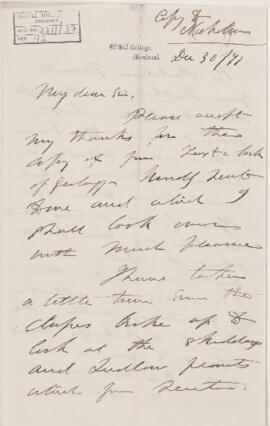 McGILL UNIV.
ARCHIVES
ACC. NO. 2211/37
REF. 43
Copy to
Nicholson
McGill College,
Montreal.
Dec 30/71
My dear Sir,
Please accept
my thanks for the
copy of your Text book
of Geology kindly sent
& one and which I
shall look over
with much pleasure
I have taken
a little time since the
classes broke up to
look at the Skiddaw
and Ludlow plants
which you sent